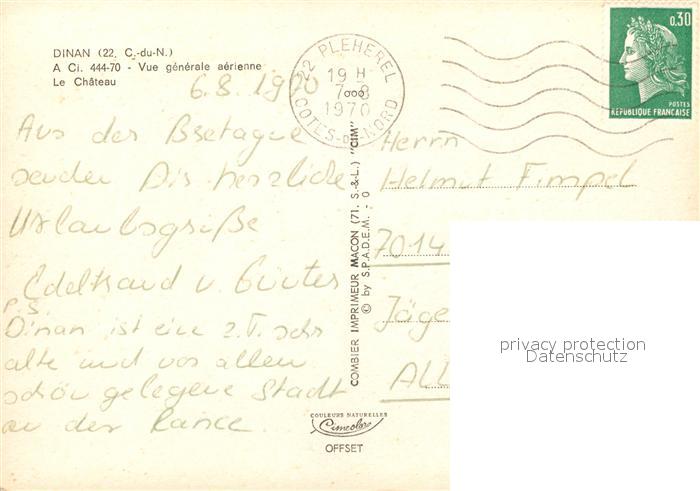 DINAN (22. C.-du-N.)
A Ci. 444-70 - Vue générale aérienne
Le Château
6.8.1970
Aus der Bretagne
senden Dir herzliche
Urlaubsgrüße
Edeltraud u. Günter
P.S.
Dinan ist eine z.T. sehr
alte und vor allem
schön gelegene Stadt
an der Rance.
22 PLEHEREL
19 H
7-8
1970
COTES-DU-NORD
0,30
POSTES
RÉPUBLIQUE FRANÇAISE
COMBIER IMPRIMEUR MACON (71. S.-&-L.) "CIM"
© by S.P.A.D.E.M. - O
Herrn
Helmut Fimpel
7014
Jäge
ALL
privacy protection
Datenschutz
COULEURS NATURELLES
Cimcolor
OFFSET